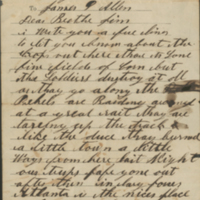 To James P. Allen
Dear Brothe Jim
i Write you a few lines
to let you know about the
Crops out here thare is Some
fine fields of Corn but
the Soldiers destroy it all
as thay go along the
Rebels are Raiding around
at a great rait thay are
tareing up the track
like the duce thay burned
a little town a little
Ways from here last Night
our troops have gone out
after them
Atlanta is the nices place